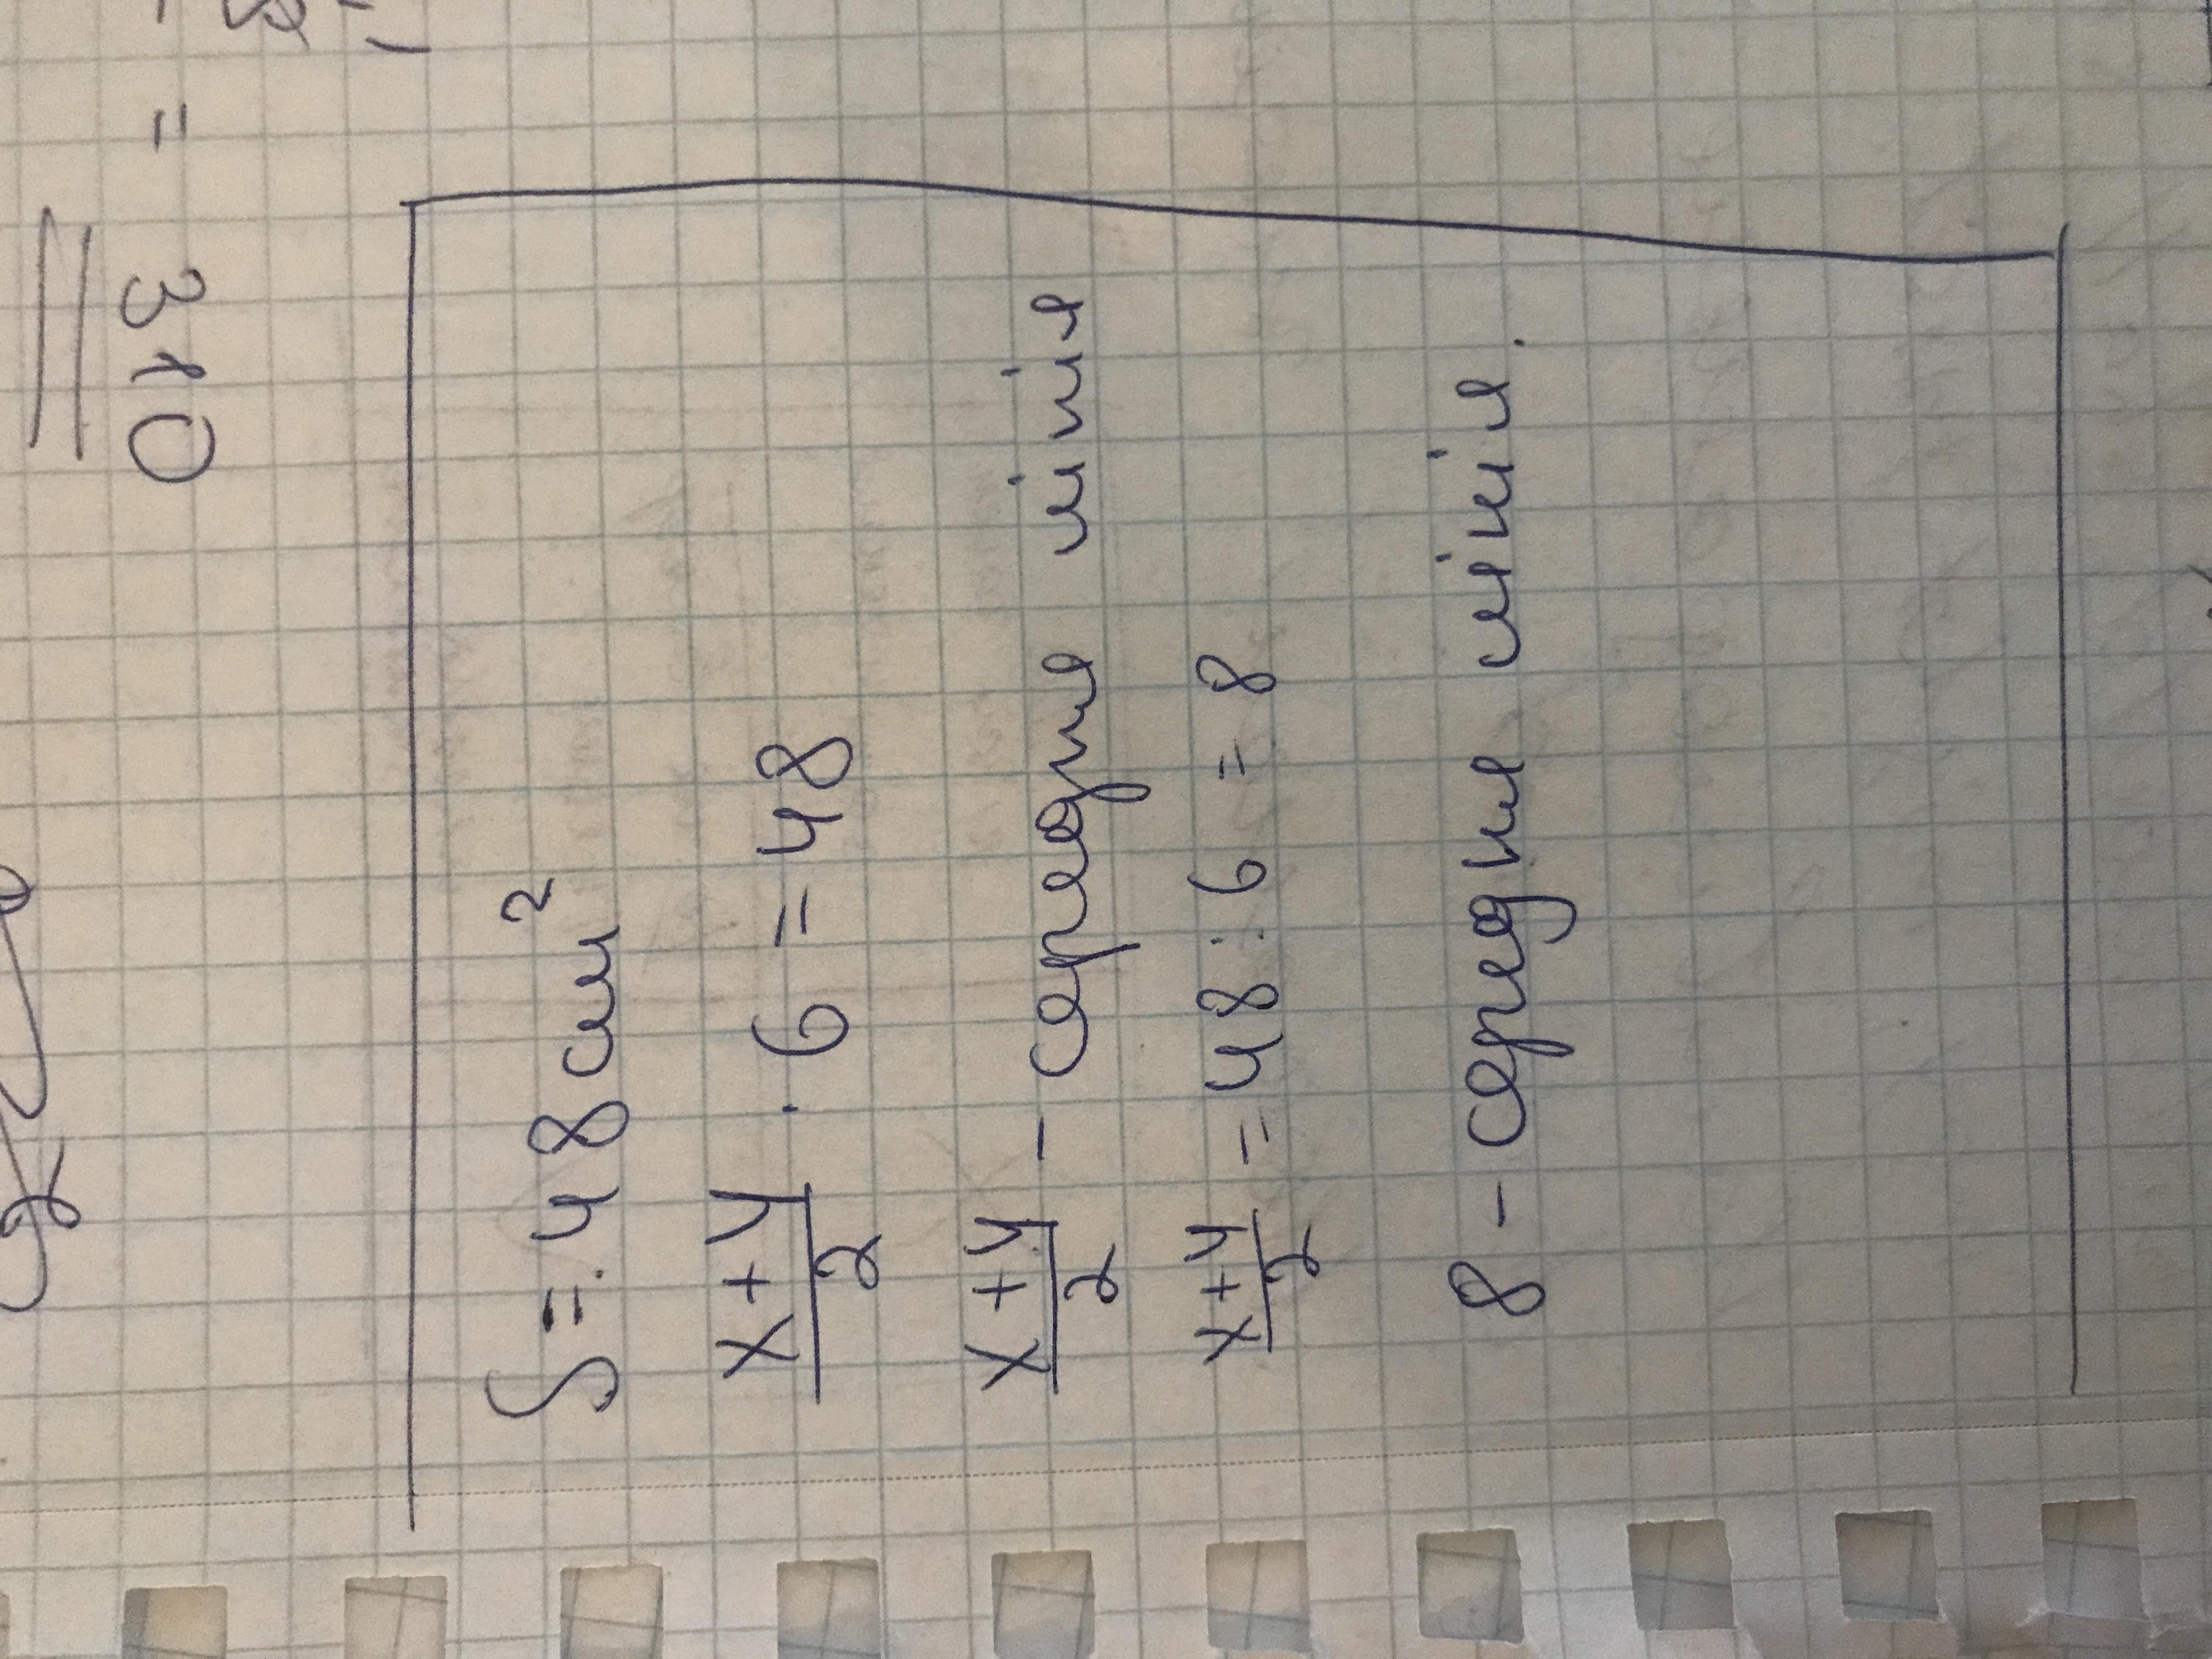 S = 48 см²
x+y/2 · 6 = 48
x+y/2 – середня лінія
x+y/2 = 48 : 6 = 8
8 – середня лінія.